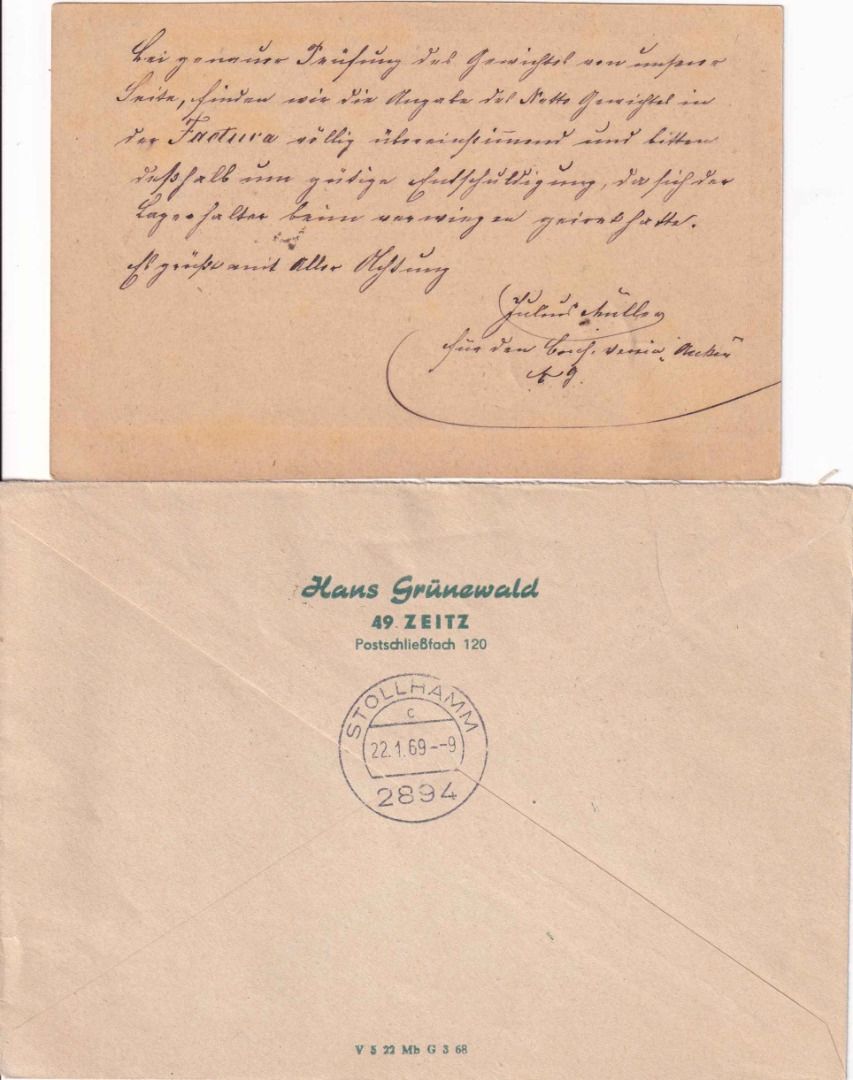 Bei genauer Prüfung des Gewichtes von unserer
Seite, finden wir die Angabe des Netto Gewichtes in
der Factura völlig übereinstimmend und bitten
deßhalb um gütige Entschuldigung, da sich der
Lagerhalter beim verwiegen geirrt hatte.
Es grüßt mit Aller Achtung
Julius Müller
für den
Hans Grünewald
49 ZEITZ
Postschließfach 120
STOLLHAMM
c
22.1.69--9
2894
V 5 22 Mb G 3 68